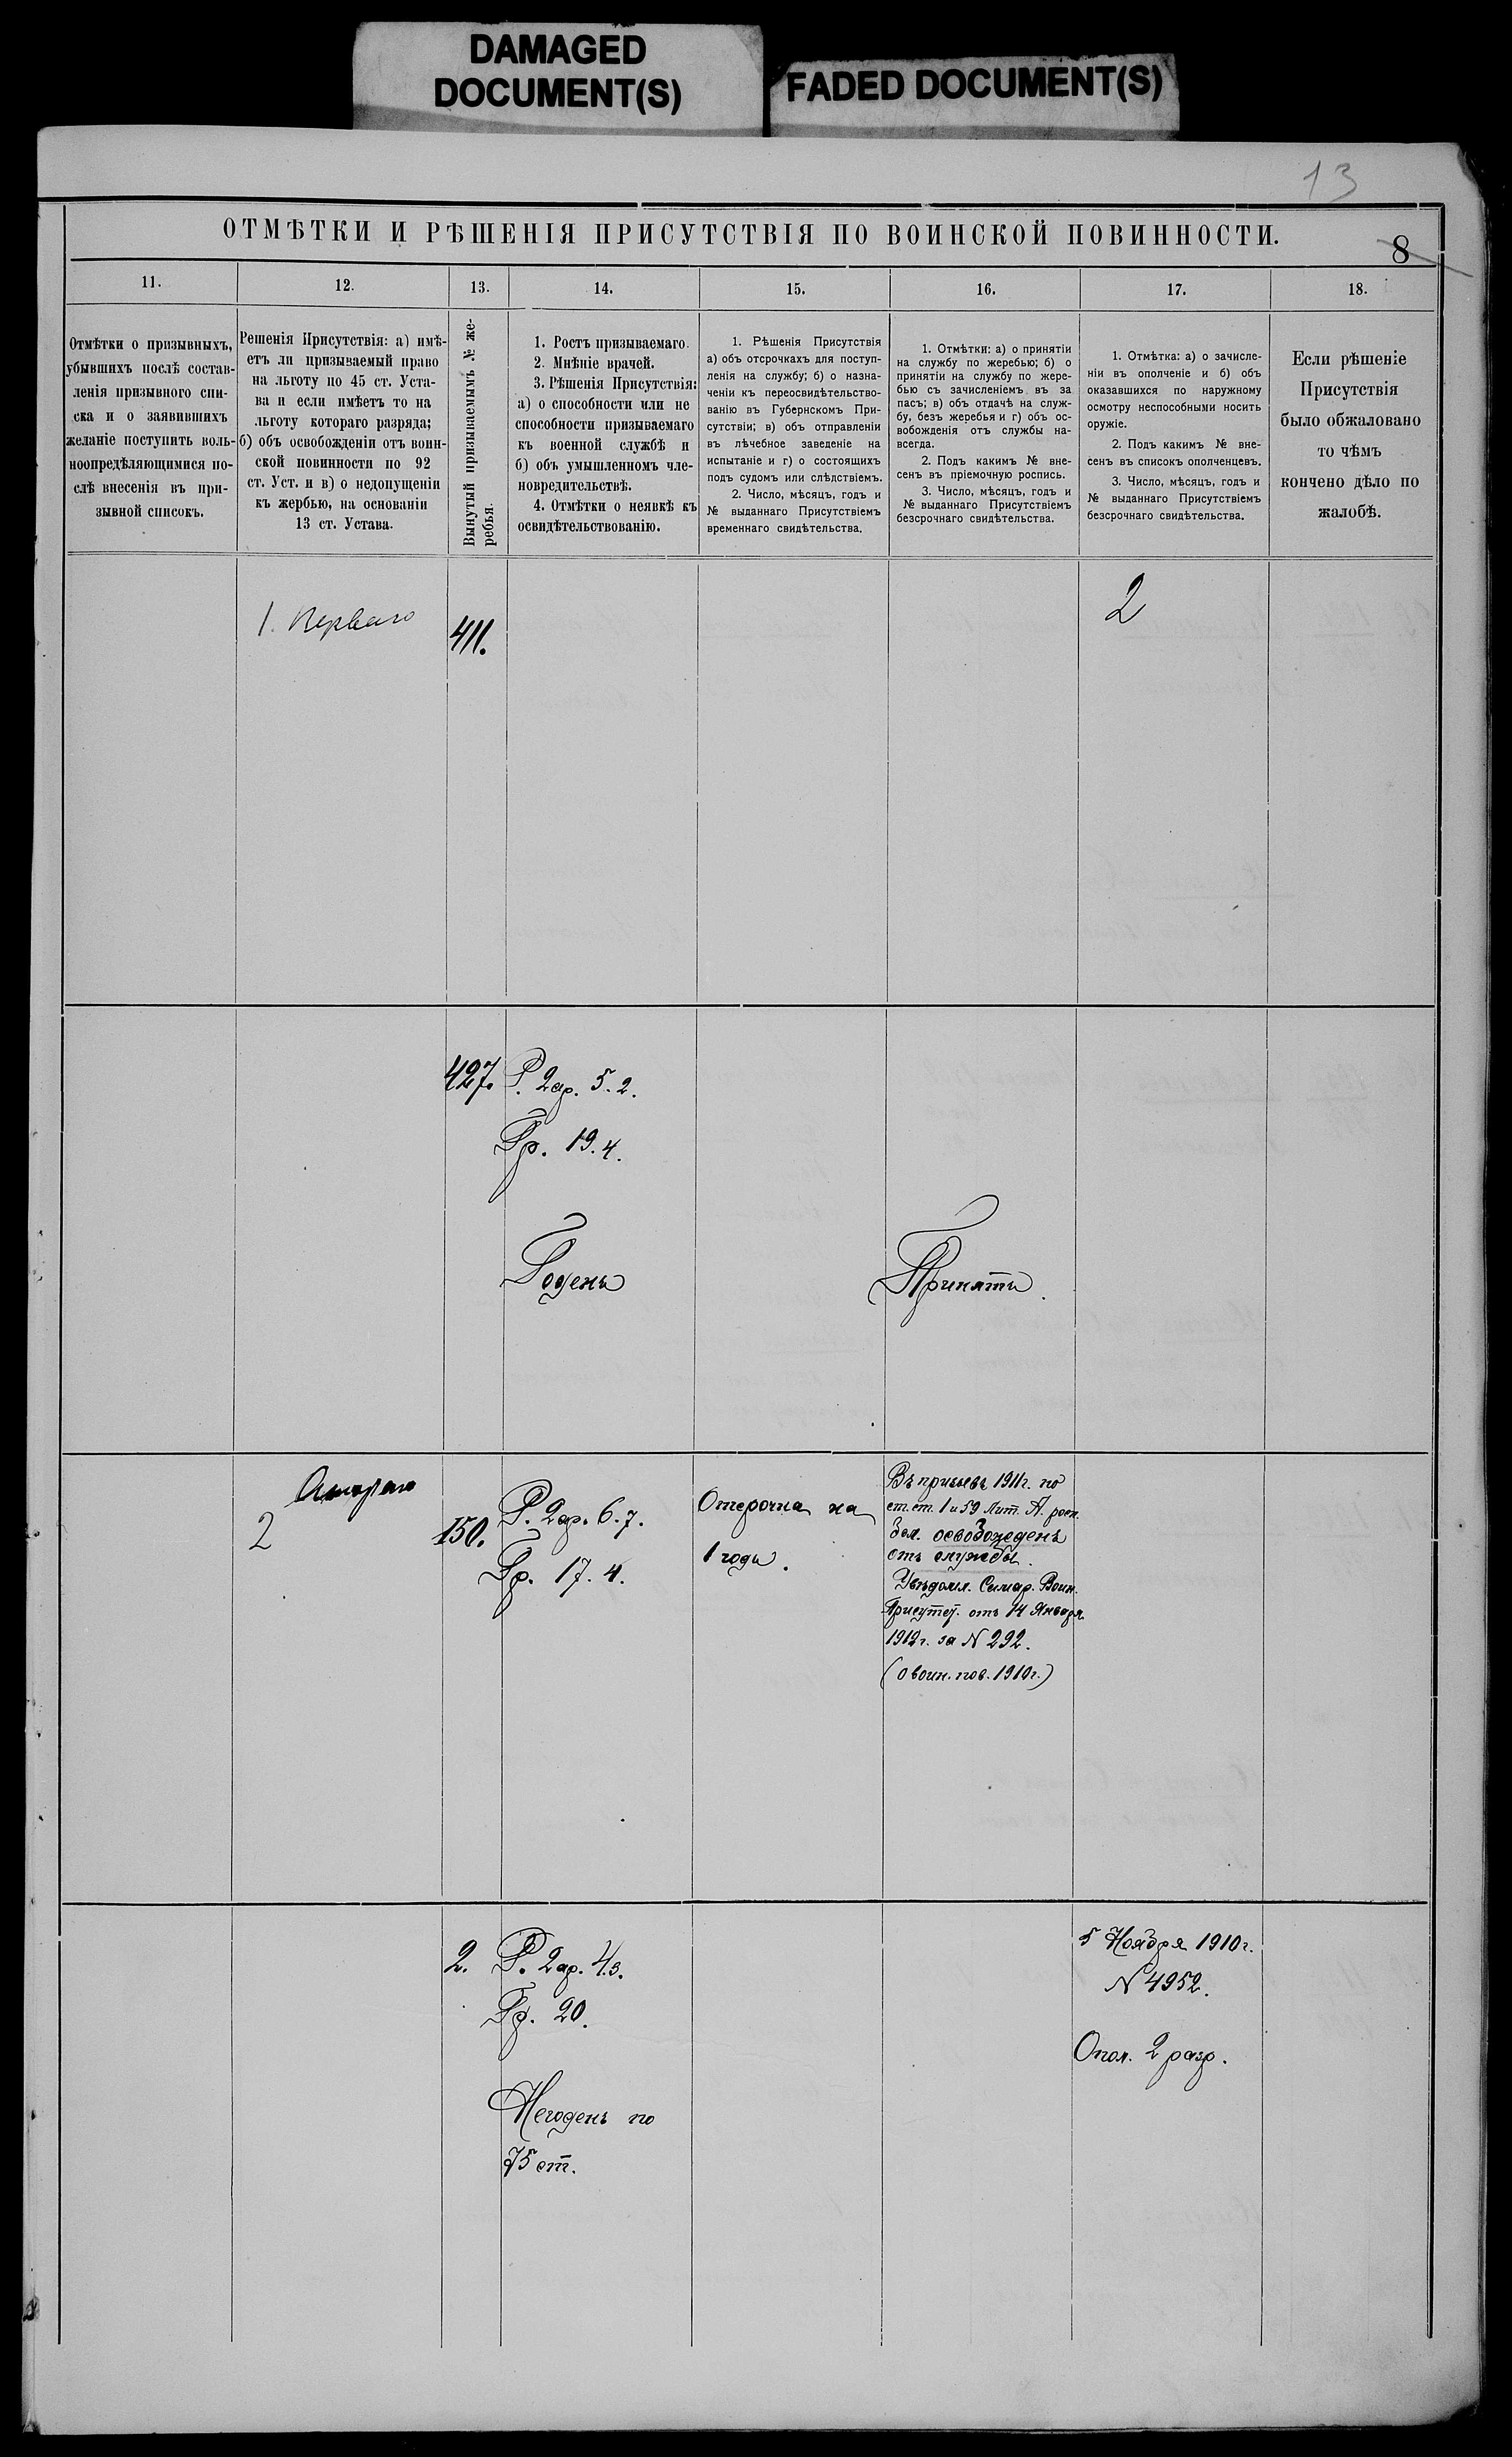 DAMAGED
DOCUMENT(S)
FADED DOCUMENT(S)
13
ОТМѢТКИ И РѢШЕНІЯ ПРИСУТСТВІЯ ПО ВОИНСКОЙ ПОВИННОСТИ.
8
11.
12.
13.
14.
15.
16.
17.
18.
Отмѣтки о призывныхъ,
убывшихъ послѣ состав-
ленія призывного спи-
ска и о заявившихъ
желаніе поступить воль-
ноопредѣляющимися по-
слѣ внесенія въ при-
зывной списокъ.
Решенія Присутствія: а) имѣ-
етъ ли призываемый право
на льготу по 45 ст. Уста-
ва и если имѣетъ то на
льготу котораго разряда;
б) объ освобожденіи отъ воин-
ской повинности по 92
ст. Уст. и в) о недопущеніи
къ жербью, на основаніи
13 ст. Устава.
Вынутый призываемымъ № же-
ребья.
1. Ростъ призываемаго.
2. Мнѣніе врачей.
3. Рѣшенія Присутствія:
а) о способности или не
способности призываемаго
къ военной службѣ и
б) объ умышленномъ чле-
новредительствѣ.
4. Отмѣтки о неявкѣ къ
освидѣтельствованію.
1. Рѣшенія Присутствія
а) объ отсрочкахъ для поступ-
ленія на службу; б) о назна-
ченіи къ переосвидѣтельство-
ванію въ Губернскомъ При-
сутствіи; в) объ отправленіи
въ лѣчебное заведеніе на
испытаніе и г) о состоящихъ
подъ судомъ или слѣдствіемъ.
2. Число, мѣсяцъ, годъ и
№ выданнаго Присутствіемъ
временнаго свидѣтельства.
1. Отмѣтки: а) о принятіи
на службу по жеребью; б) о
принятіи на службу по жере-
бью съ зачисленіемъ въ за
пасъ; в) объ отдачѣ на служ-
бу, безъ жеребья и г) объ ос-
вобожденія отъ службы на-
всегда.
2. Подъ какимъ № вне-
сенъ въ пріемочную роспись.
3. Число, мѣсяцъ, годъ и
№ выданнаго Присутствіемъ
безсрочнаго свидѣтельства.
1. Отмѣтка: а) о зачисле-
ніи въ ополченіе и б) объ
оказавшихся по наружному
осмотру неспособными носить
оружіе.
2. Подъ какимъ № вне-
сенъ въ списокъ ополченцевъ.
3. Число, мѣсяцъ, годъ и
№ выданнаго Присутствіемъ
безсрочнаго свидѣтельства.
Если рѣшеніе
Присутствія
было обжаловано
то чѣмъ
кончено дѣло по
жалобѣ.
1. Перваго
411.
2
427.
Р. 2ар. 5. 2.
Гр. 19. 4.
Годенъ
Принятъ.
2
150.
Р. 2ар. 6. 7.
Гр. 17. 4.
Отсрочка на
1 годъ.
Въ призывъ 1911г. по
ст. ст. 1 и 59 Лит. А. росп.
бол. освобожденъ
отъ службы.
Увѣдомл. Самар. Воин.
Присутст. отъ 14 Января
1912г. за N 292.
(о воин. пов. 1910г.)
2.
Р. 2ар. 4. 3.
Гр. 20.
Негоденъ по
75 ст.
5 Ноября 1910г.
N 4952.
Опол. 2 разр.